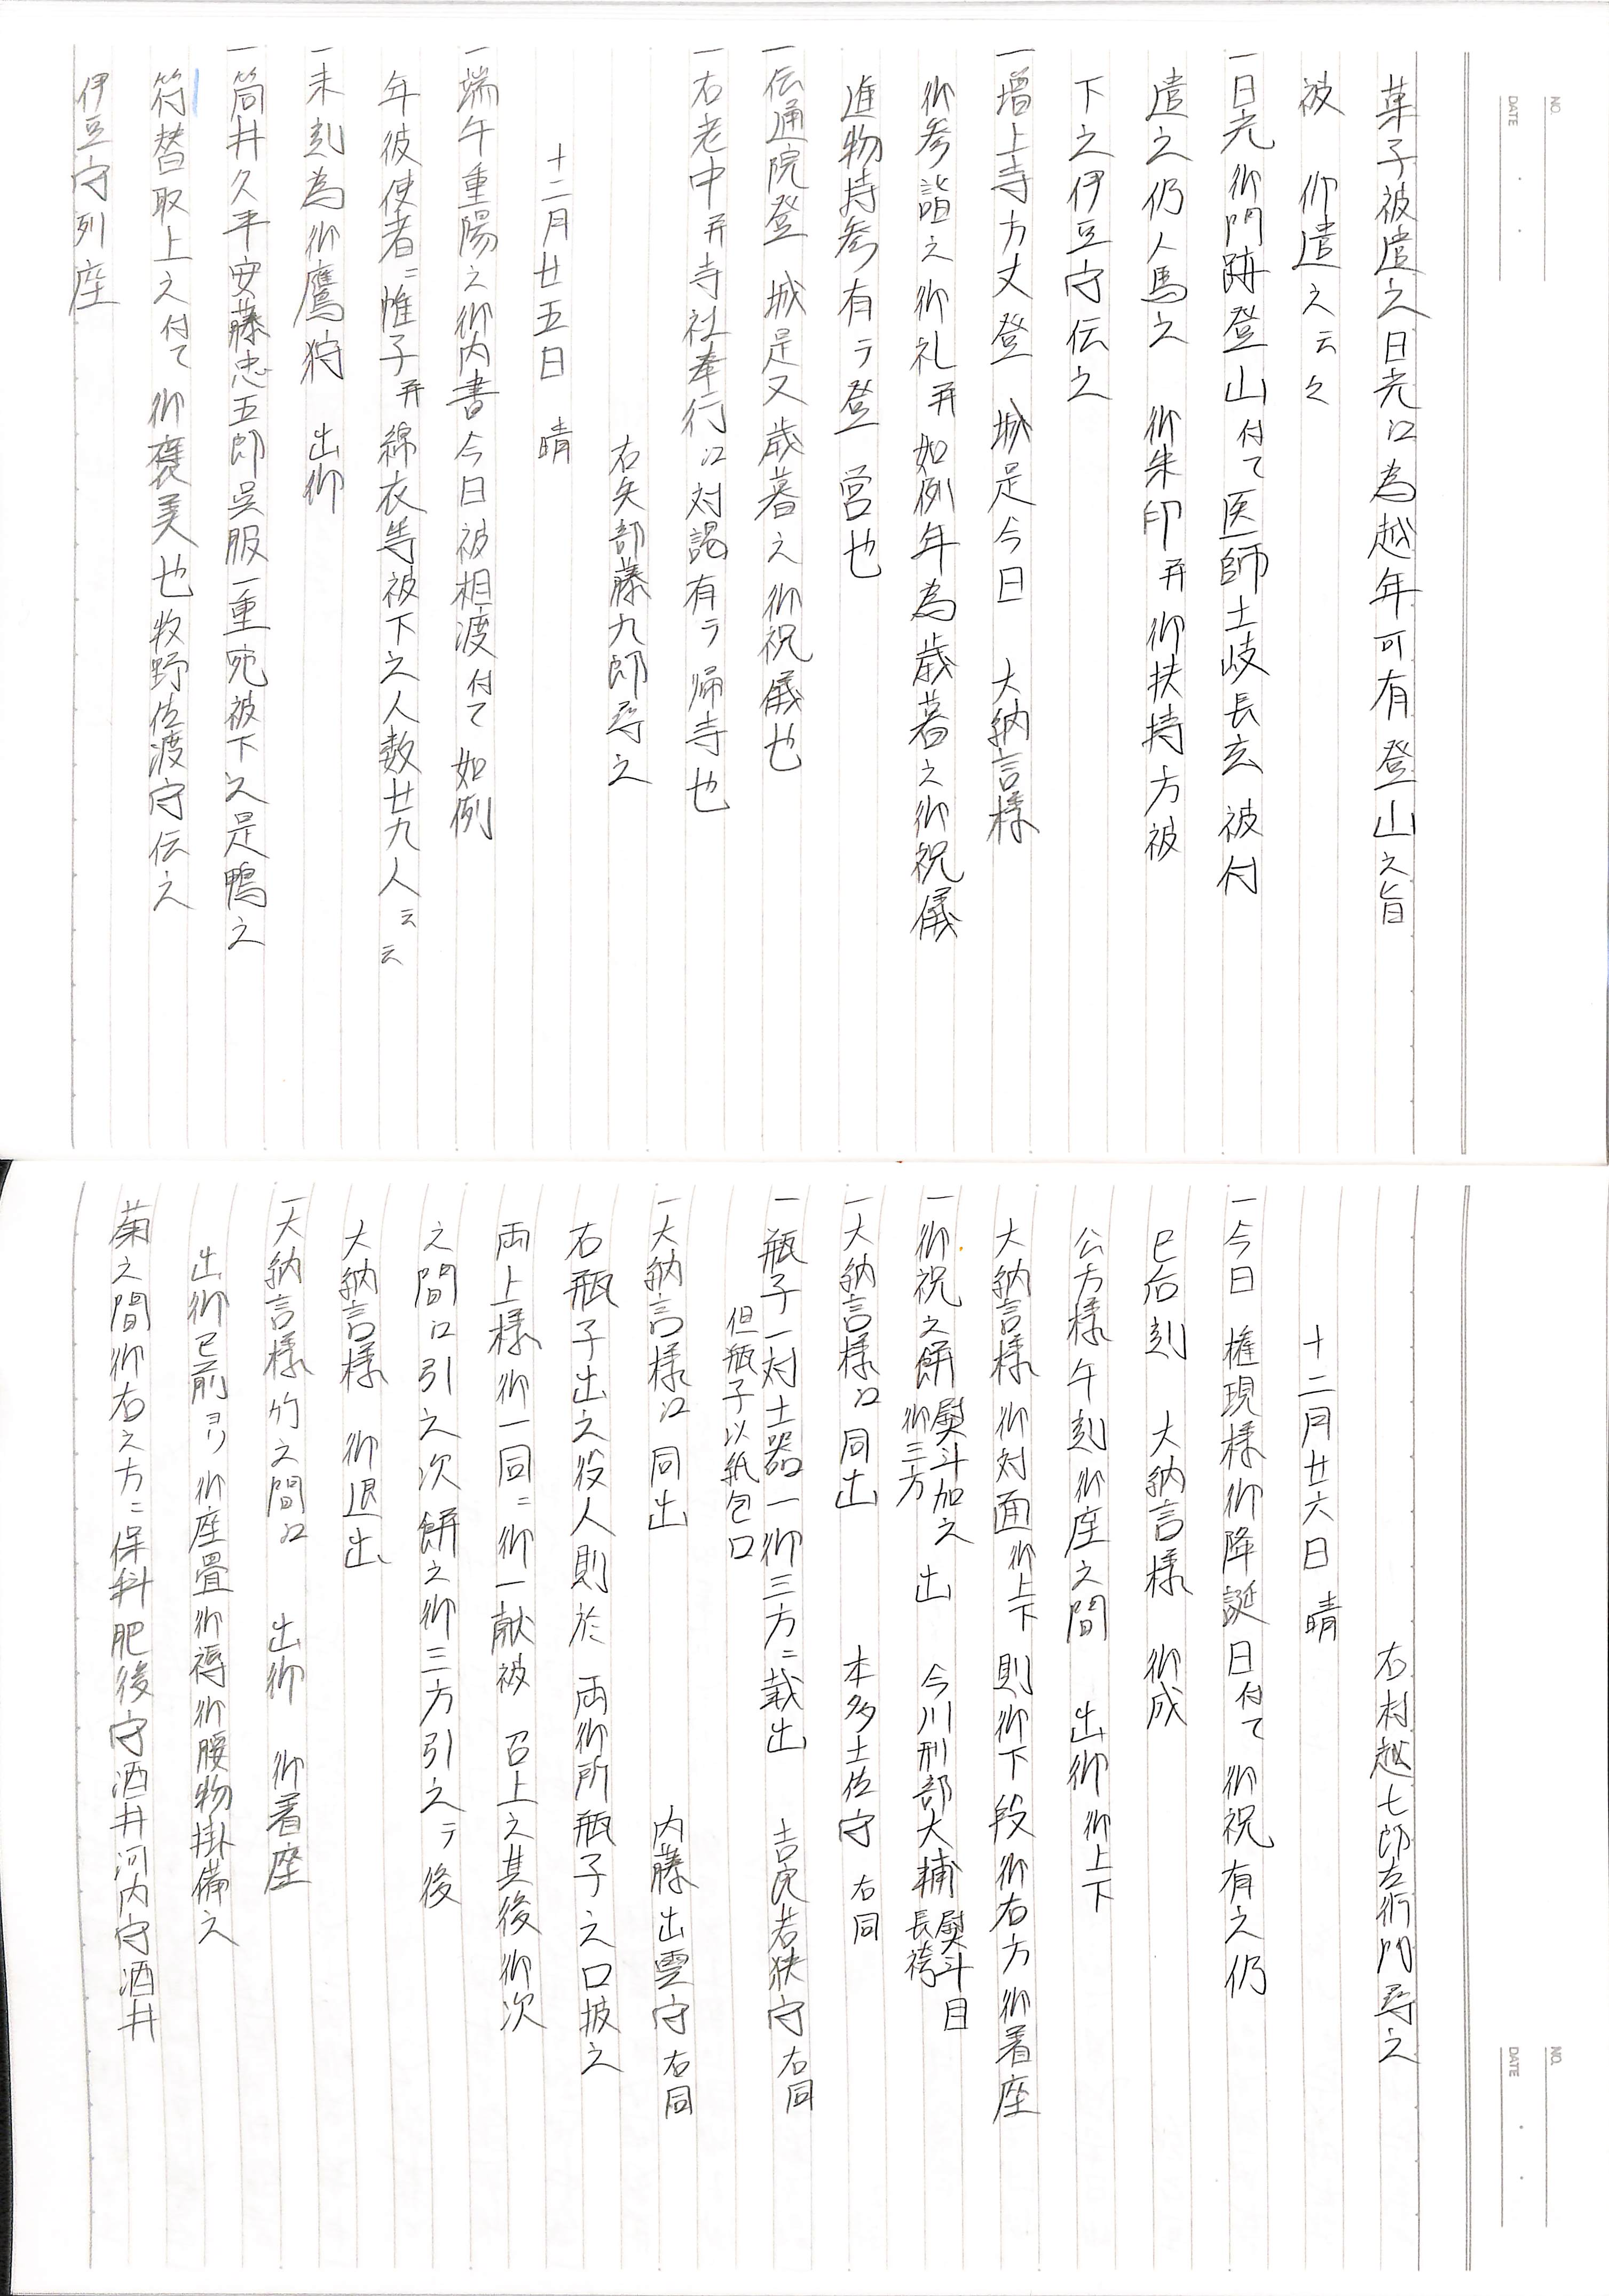 NO.
DATE
菓子被遣之日光江為越年可有登山之旨
被　仰遣之云々
一日光御門跡登山付て医師土岐長玄被付
遣之仍人馬之　御朱印并御扶持方被
下之伊豆守伝之
一増上寺方丈登　城是今日　大納言様
御参詣之御礼并如例年為歳暮之御祝儀
進物持参有テ登　営也
一伝通院登　城是又歳暮之御祝儀也
一右老中并寺社奉行江対謁有テ帰寺也
右矢部藤九郎尋之
十二月廿五日　晴
一端午重陽之御内書今日被相渡付て如例
年彼使者ニ帷子并綿衣等被下之人数廿九人云云
一未刻為御鷹狩　出御
一筒井久平安藤忠五郎呉服一重宛被下之是鴨之
符替取上之付て御褒美也牧野佐渡守伝之
伊豆守列座
NO.
DATE
右村越七郎左衛門尋之
十二月廿六日　晴
一今日　権現様御降誕日付て御祝有之仍
巳后刻　大納言様　御成
公方様午刻御座之間　出御御上下
大納言様御対面御上下則御下段御右方御着座
一御祝之餅熨斗加之御三方　出　今川刑部大輔熨斗目長袴
一大納言様江同出　本多土佐守　右同
一瓶子一対土器一御三方ニ載出　吉良若狭守　右同
但瓶子以紙包口
一大納言様江同出　内藤出雲守　右同
右瓶子出之役人則於　両御所瓶子之口披之
両上様御一同ニ御一献被　召上之其後御次
之間江引之次餅之御三方引之テ後
大納言様　御退出
一大納言様竹之間江　出御　御着座
出御已前ヨリ御座畳御褥御腰物掛備之
菊之間御右之方ニ保科肥後守酒井河内守酒井